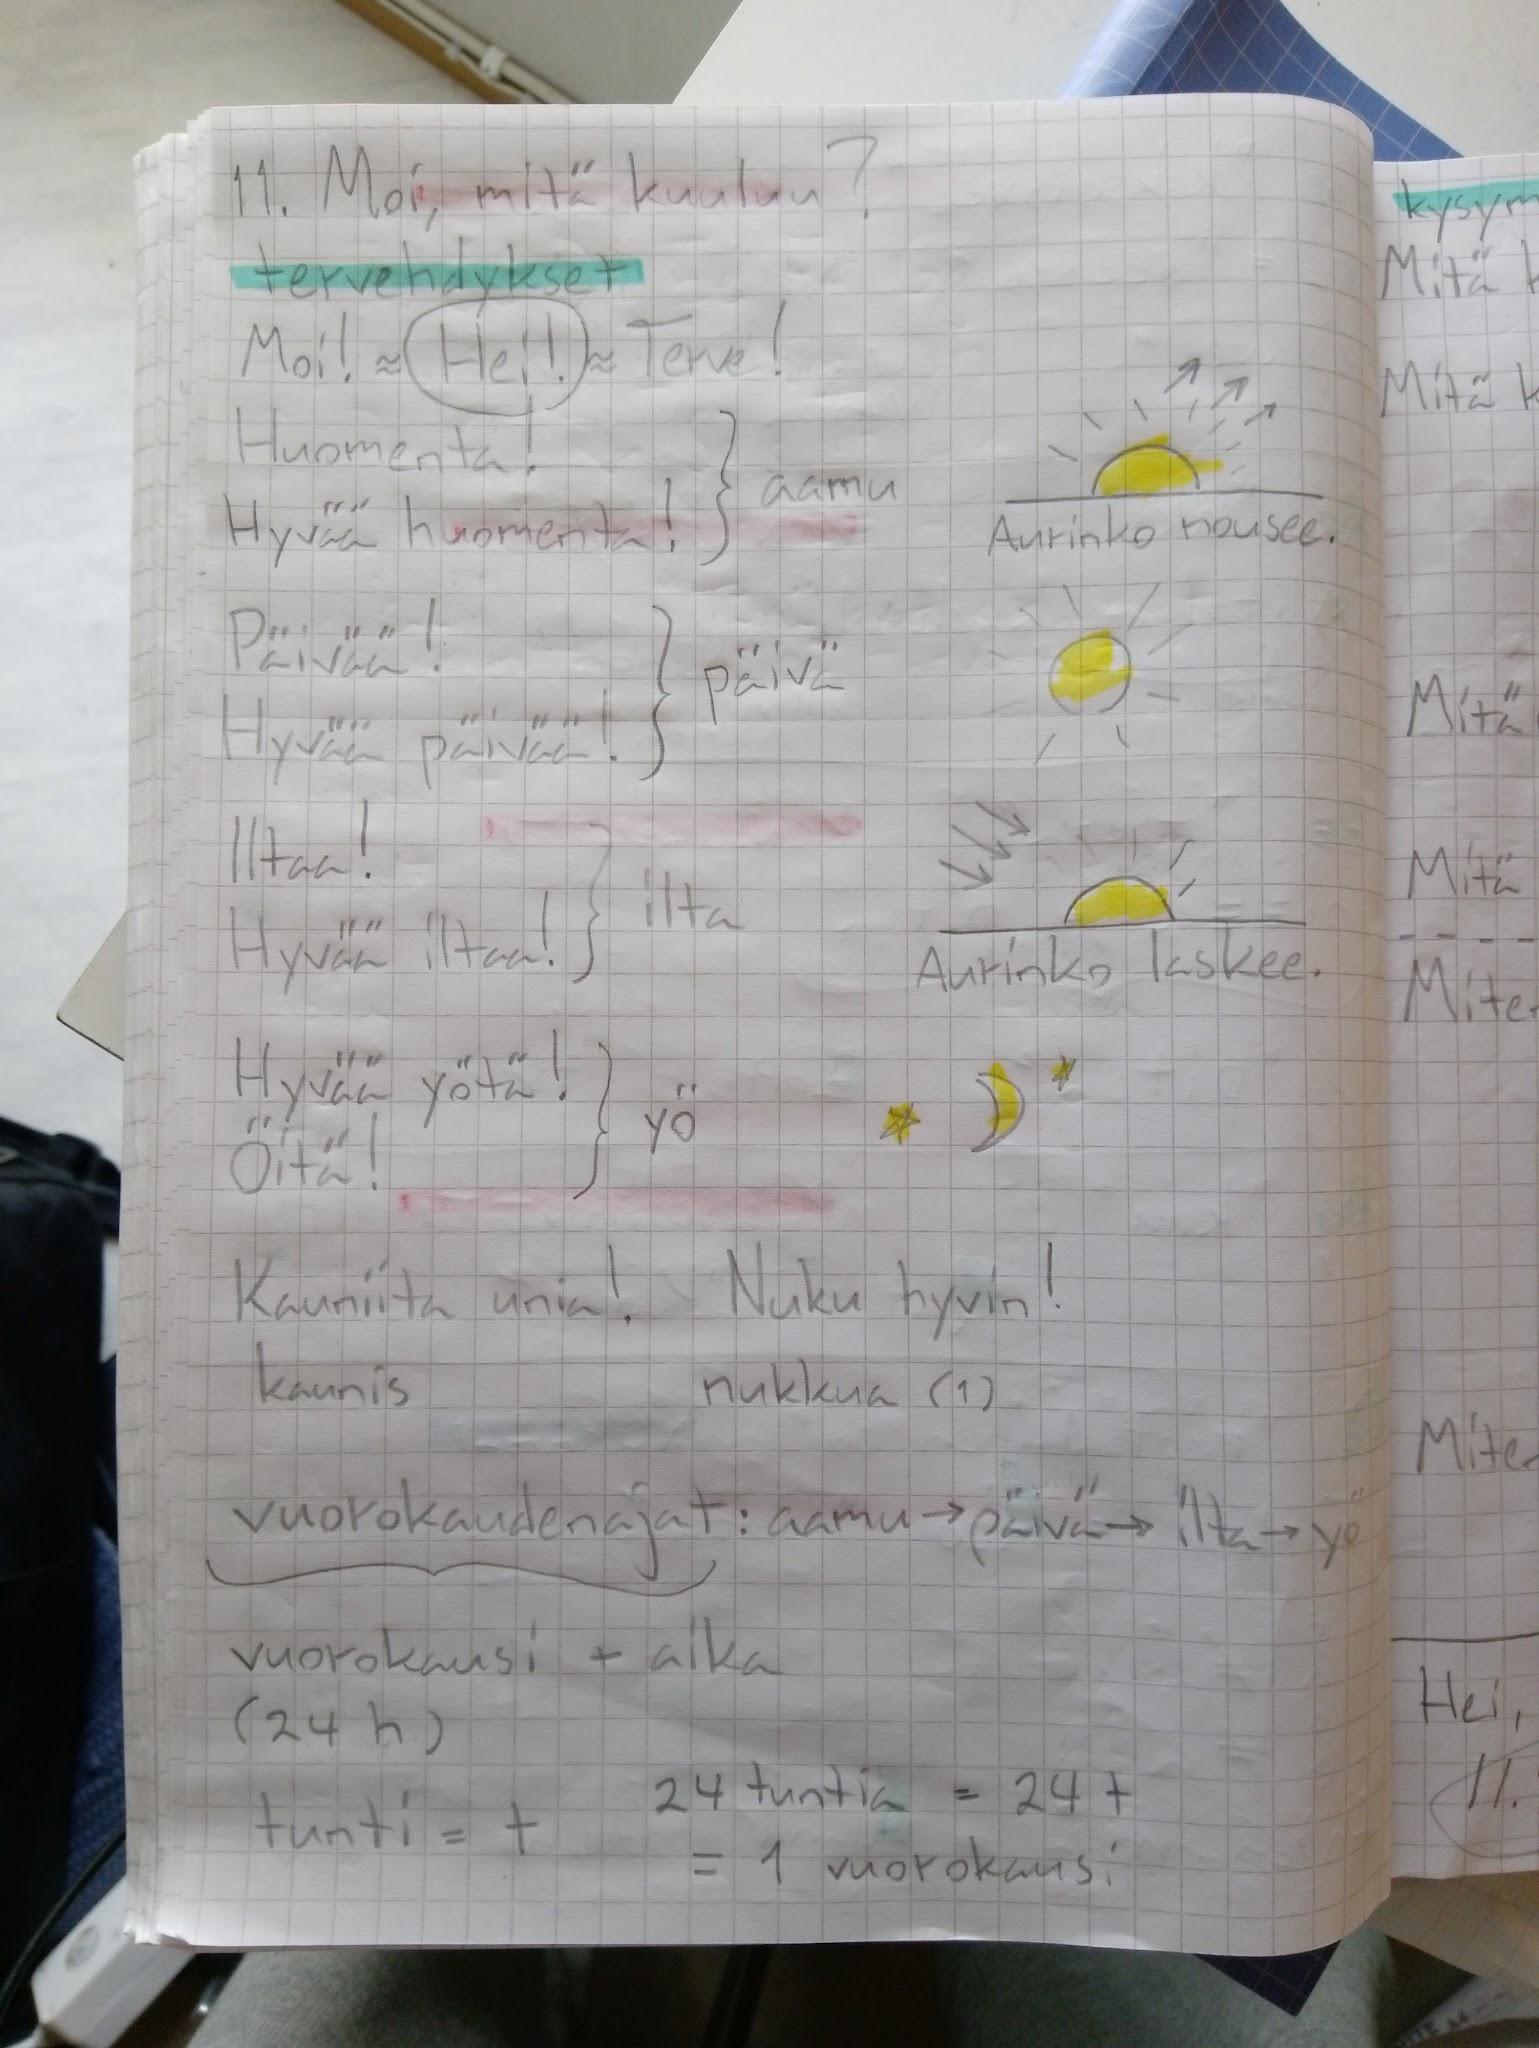 11. Moi, mitä kuuluu?
tervehdykset
Moi! ≈ Hei! ≈ Terve!
Huomenta!
Hyvää huomenta!
aamu
Aurinko nousee.
Päivää!
Hyvää päivää!
päivä
Iltaa!
Hyvää iltaa!
ilta
Aurinko laskee.
Hyvää yötä!
Öitä!
yö
Kauniita unia! Nuku hyvin!
kaunis nukkua (1)
vuorokaudenajat: aamu → päivä → ilta → yö
vuorokausi + aika
(24 h)
tunti = t
24 tuntia = 24 t
= 1 vuorokausi
Mitä
Mitä
Mitä
Mitä
Hei,
11.